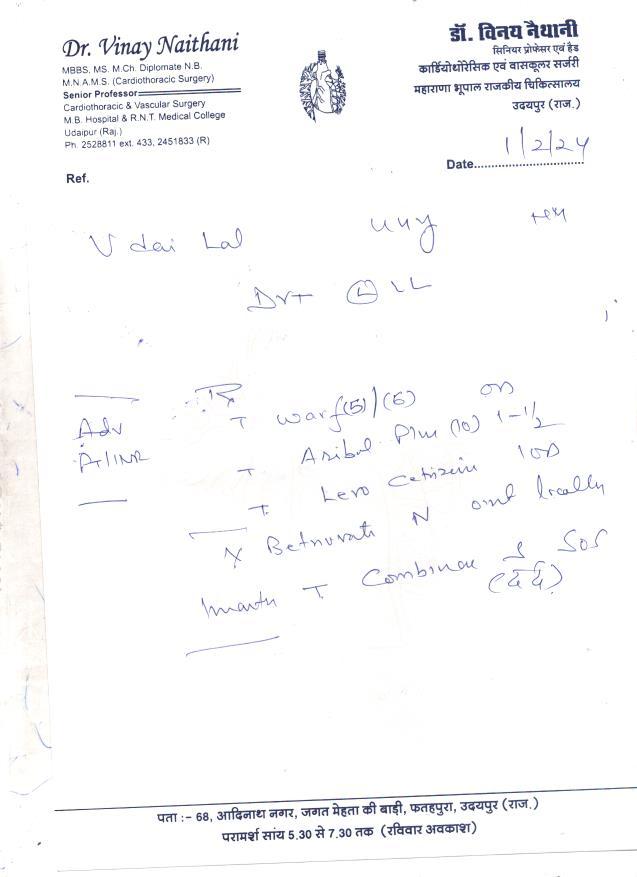 Dr. Vinay Naithani
MBBS, MS. M.Ch. Diplomate N.B.
M.N.A.M.S. (Cardiothoracic Surgery)
Senior Professor
Cardiothoracic & Vascular Surgery
M.B. Hospital & R.N.T. Medical College
Udaipur (Raj.)
Ph. 2528811 ext. 433, 2451833 (R)
डॉ. विनय नैथानी
सिनियर प्रोफेसर एवं हैड
कार्डियोथोरेसिक एवं वासकूलर सर्जरी
महाराणा भूपाल राजकीय चिकित्सालय
उदयपुर (राज.)
Date 1/2/24
Ref.
Udai Lal 44y
DVT (L) LL
Adv
PT/INR
Rx
T warf (5)/(5) OD
T Plus (10) 1-1/2
T. Levo Cetrizein 1 OD
X Betnuvate N omt locally
T Combinac SOS
(दर्द)
पता :- 68, आदिनाथ नगर, जगत मेहता की बाड़ी, फतहपुरा, उदयपुर (राज.)
परामर्श सांय 5.30 से 7.30 तक (रविवार अवकाश)